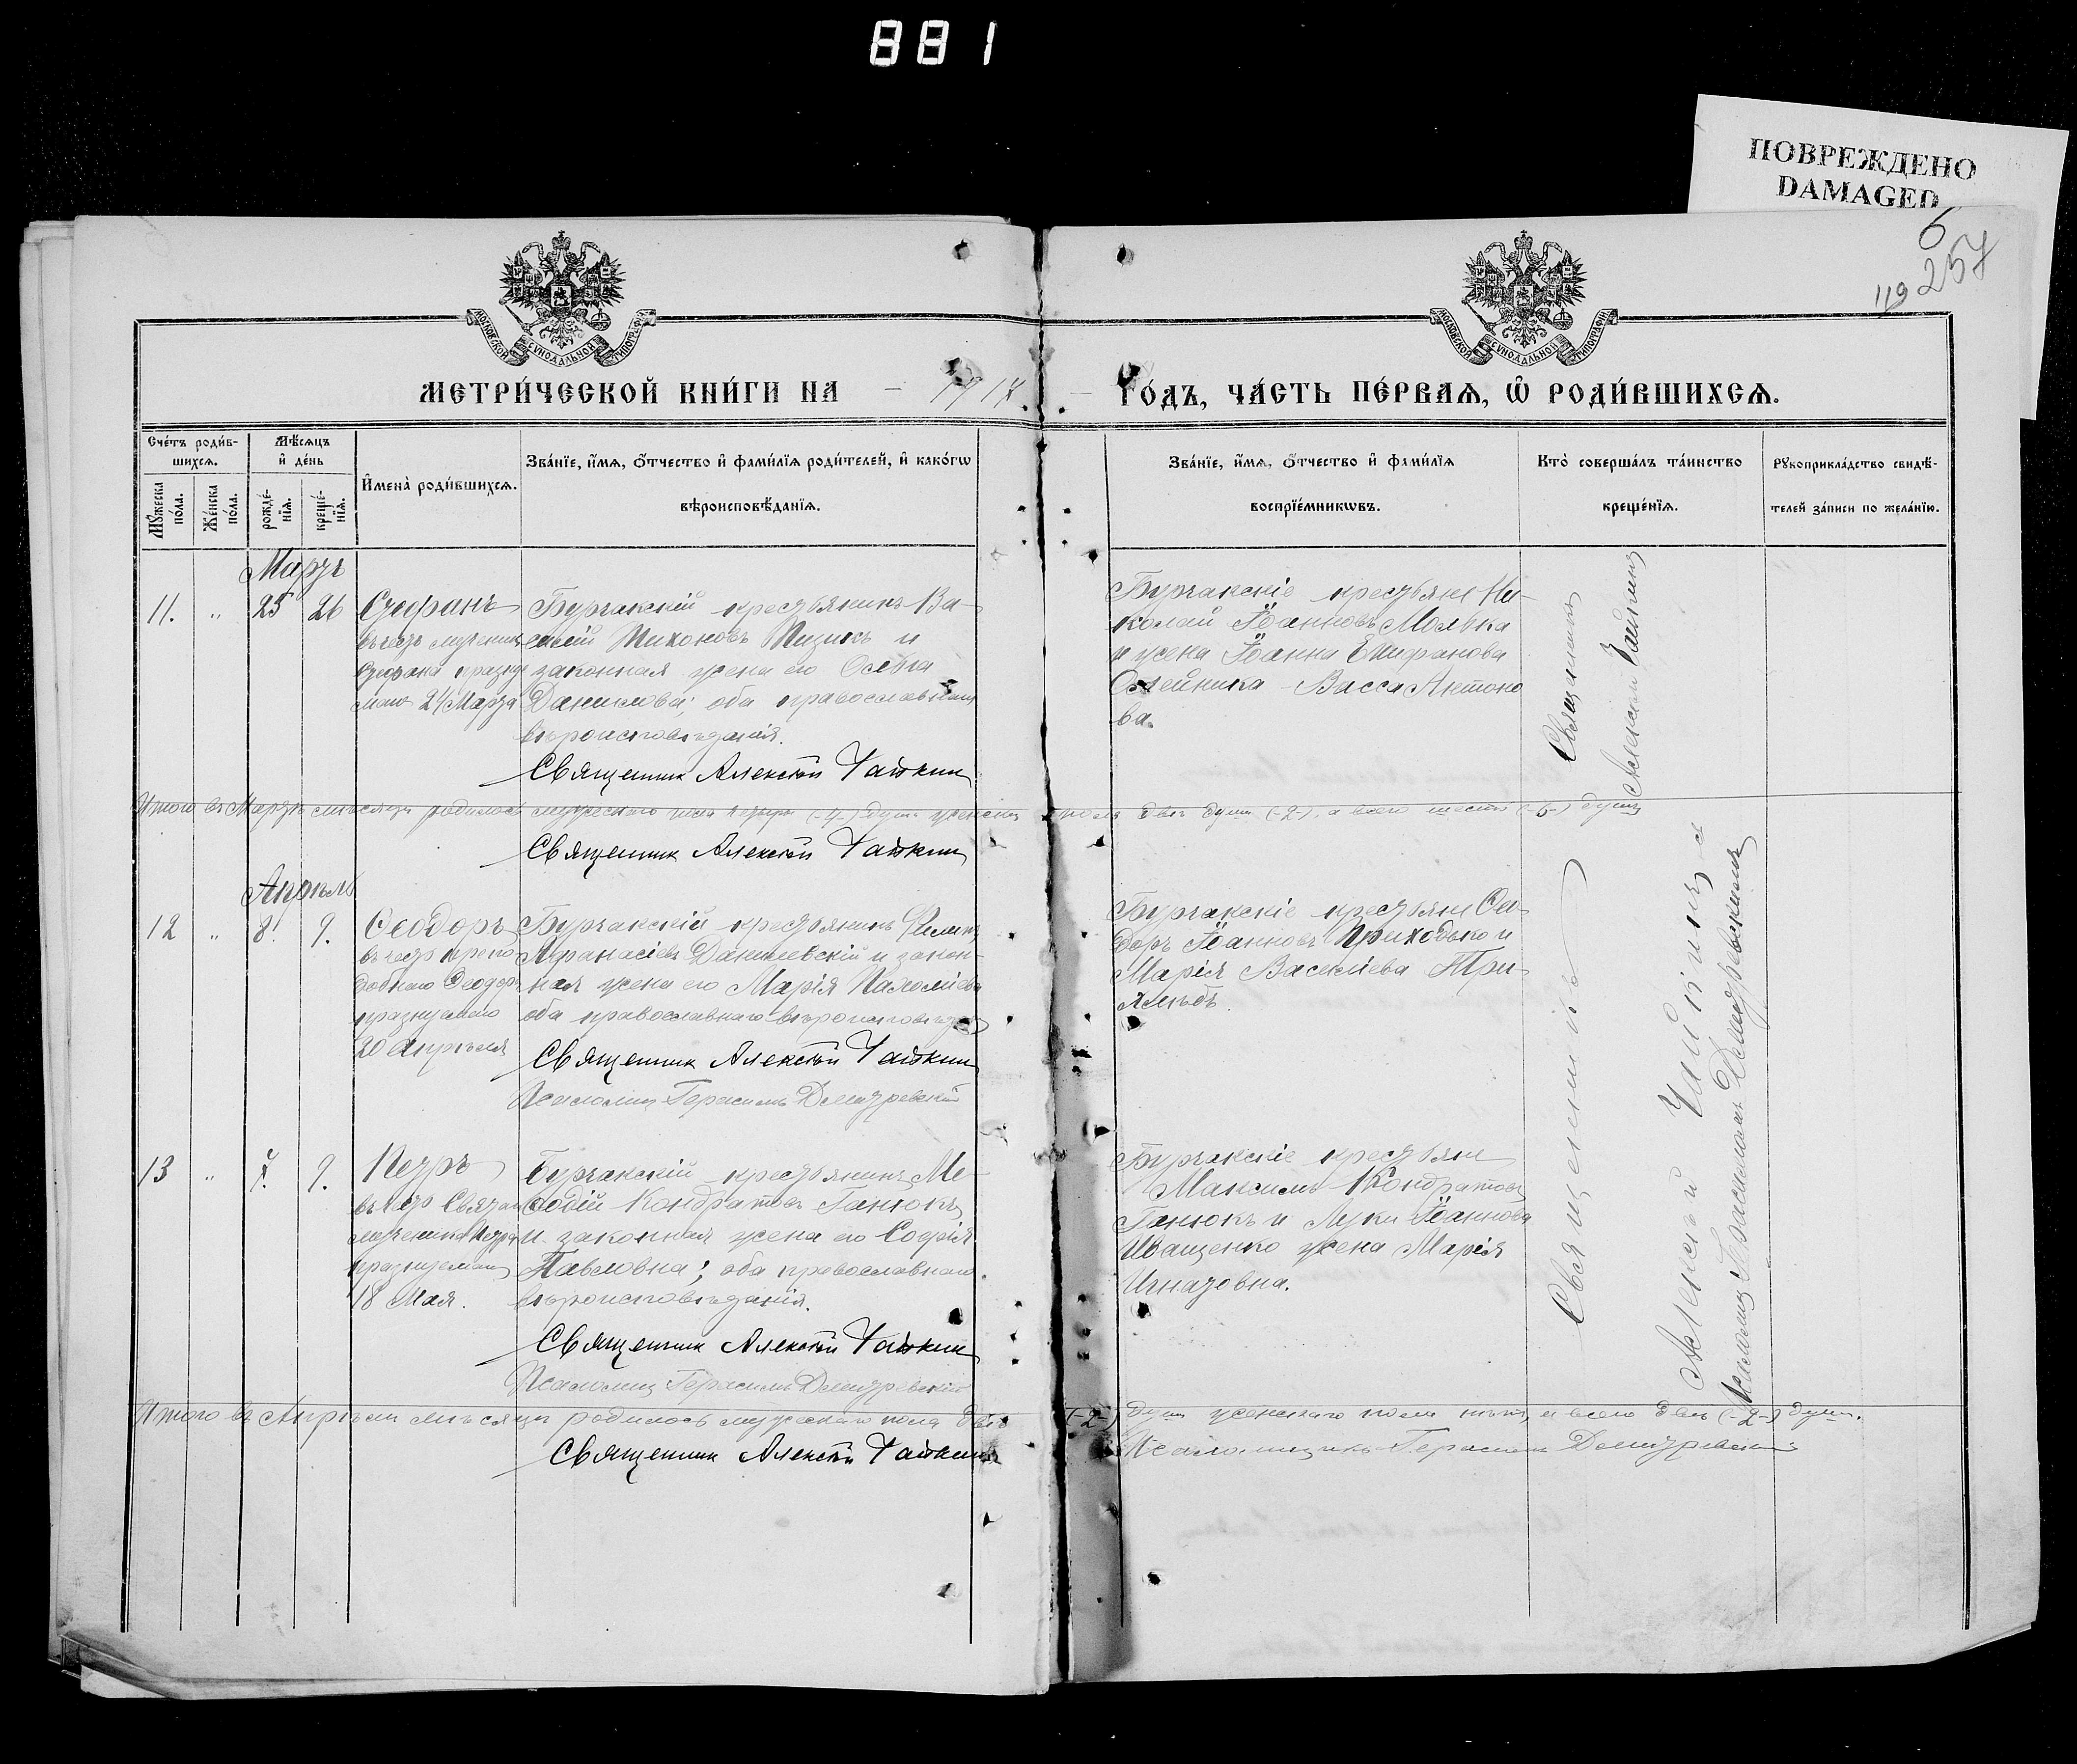 881
ПОВРЕЖДЕНО
DAMAGED
6
257
119
МОСКОВСКОЙ СѴНОДАЛЬНОЙ ТИПОГРАФІИ
МОСКОВСКОЙ СѴНОДАЛЬНОЙ ТИПОГРАФІИ
МЕТРИ́ЧЕСКОЙ КНИ́ГИ НА - 1917
ГО́ДЪ, ЧА́СТЬ ПЕ́РВАѦ, Ѽ РОДИ́ВШИХСѦ.
Сче́тъ роди́в-
шихсѧ.
Мѣ́сѧцъ
и҆ де́нь
Мꙋ́жеска по́ла.
Же́нска по́ла.
рожде́-нїѧ.
креще́-нїѧ.
И҆мена̀ роди́вшихсѧ.
Зва́нїе, и҆́мѧ, ѻ҆́тчество и҆ фами́лїѧ роди́телей, и҆ како́гѡ
вѣроисповѣ́данїѧ.
Зва́нїе, и҆́мѧ, ѻ҆́тчество и҆ фами́лїѧ
воспрїе́мникѡвъ.
Кто̀ соверша́лъ та́инство
креще́нїѧ.
Рꙋкоприкла́дство свидѣ́-
телей за́писи по жела́нїю.
Мартъ
11. " 25 26 Стефанъ
въ честь мученик
Стефана празну
маго 24 Марта
Бургакскій крестьянинъ Ва-
силій Тихоновъ
законная жена его
Данилова; оба православнаго
вѣроисповѣданія.
Священник Алексѣй Чайкин
Бургакскіе крестьяне Ни-
колай Іоанновъ
и жена Іоанна Епифанова
Олейника - Васса Антоно
ва.
Священникъ
Алексѣй Чайкинъ
Итого въ Мартѣ мѣсяцѣ родилось мужескаго пола четыре (-4-) душ женскаго пола двѣ души (-2-), а всего шесть (-6-) душъ
Священник Алексѣй Чайкин
Апрѣль
12 " 8. 9. Ѳеодоръ
въ честь препо
добнаго Ѳеодора
празнуемаго
20 Апрѣля
Бургакскій крестьянинъ Филипъ
Афанасіевъ Данилевскій и закон-
ная жена его Марія
оба православнаго вѣроисповѣдан
Священник Алексѣй Чайкин
Псаломщ Герасимъ
Бургакскіе крестьяне Ѳе-
доръ Іоанновъ Приходько и
Марія Василіева
13 " 8. 9. Петръ
въ честь Святаго
мученика Петра
празнуемаго
18 Мая.
Бургакскій крестьянинъ Ме-
ѳодій Кондратовъ Ганюкъ
и законная жена его Софія
Павловна; оба православнаго
вѣроисповѣданія.
Священник Алексѣй Чайкин
Псаломщ Герасимъ
Бургакскіе крестьяне
Максимъ Кондратовъ
Ганюкъ и Луки Іоаннова
Иващенко жена Марія
Игнатовна.
Священникъ
Алексѣй Чайкинъ
Псаломщ
Итого въ Апрѣлѣ мѣсяцѣ родилось мужескаго пола двѣ (-2-) души женскаго пола нѣтъ, а всего двѣ (-2-) души.
Священник Алексѣй Чайкин
Псаломщикъ Герасимъ